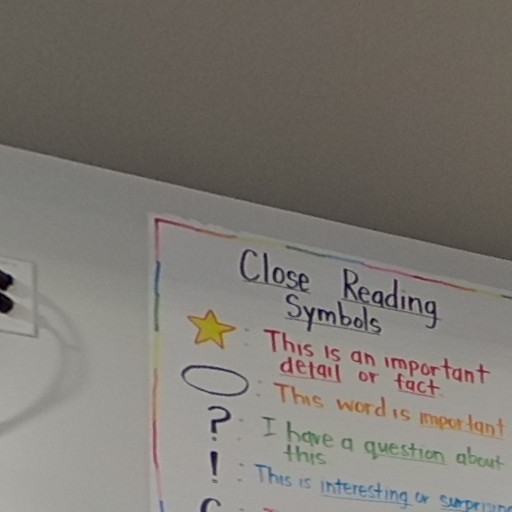 Close Reading
Symbols
: This is an important
detail or fact
: This word is important
? : I have a question about
this
! : This is interesting or surprising